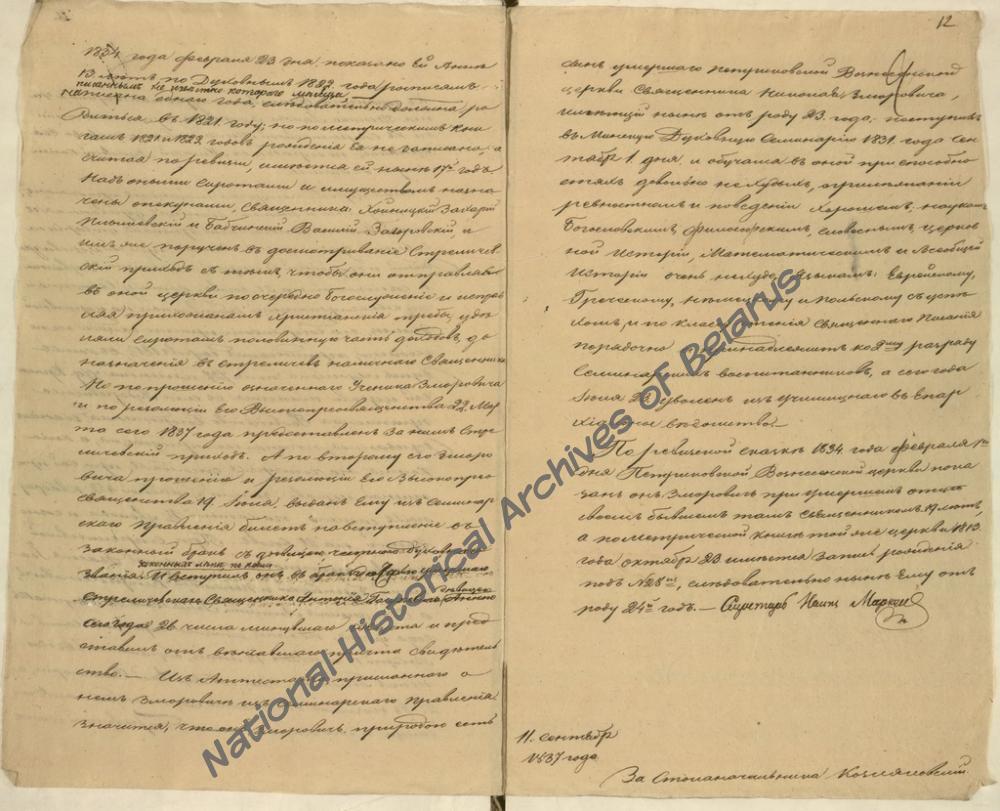 1834 года февраля 23 дня показано ей Анне
13 летъ по Духовнымъ 1822 года росписямъ
писаннымъ
написана одного года, следовательно должна ро
диться въ 1821 году; но по метрическимъ кни
гамъ 1821 и 1822 годовъ рожденія ея не записано, а
считая по ревизіи, имеется ей ныне 17й годъ
Надъ оными сиротами и имуществомъ назна
чены опекунами, Священники: Хойницкій Захарій
и Бабчинскій Василій Заборовскій, и
имъ же порученъ въ досматриваніе Стреличев
скій приходъ съ темъ, чтобы они отправляли
въ оной церкви поочередно Богослуженіе и исправ
ляя прихожанамъ христіанскія требы, уде
ляли сиротамъ половинную часть доходовъ, до
назначенія въ Стреличевъ наличнаго Священника
Но по прошенію означеннаго Ученика Зморовича
и по резолюціи Его Высокопреосвященства 22 Мар
та сего 1837 года предоставленъ за нимъ Стре
личевскій приходъ. А по второму его Зморо
вича прошенію и резолюціи Его Высокопрео
священства 19 Іюля, выданъ ему изъ Семинар
скаго Правленія билетъ на вступленіе въ
законный бракъ съ девицею честнаго духовнаго
званія. И вступилъ онъ въ бракъ
Стреличевскаго Священника Антонія
сего года 26 числа минувшаго и пред
ставилъ отъ венчавшаго причта свидетель
ство. — Изъ Аттестата, присланнаго о
немъ Зморовиче изъ Семинарскаго Правленія
значится, что онъ Зморовичъ, природою есть
12
сынъ умершаго Петриковской Вознесенской
церкви Священника Николая Зморовича,
имеющій ныне отъ роду 23 года, поступилъ
въ Минскую Духовную Семинарію 1831 года Сен
тября 1 дня, и обучался въ оной при способно
стяхъ довольно не худыхъ, прилежаніи
ревностномъ и поведеніи хорошемъ; наукамъ
Богословскимъ, философскимъ, словеснымъ, церков
ной Исторіи, Математическимъ и Всеобщей
Исторіи очень не худо, языкамъ: Еврейскому,
Греческому, немецкому и польскому съ успе
хомъ, и по классу чтенія Священнаго Писанія
порядочно принадлежитъ ко 2му разряду
Семинарскихъ воспитанниковъ, а сего года
Іюля уволенъ изъ училищнаго въ Епар
хіальное ведомство.
По ревизской сказке 1834 года февраля 1го
дня Петриковской Вознесенской церкви пока
занъ онъ Зморовичъ при умершемъ отце
своемъ бывшемъ тамъ Священникомъ 19 летъ,
а по метрической книге той же церкви 1813
года октября 23 имеется запись рожденія
подъ № 28мъ, следовательно ныне ему отъ
роду 24й годъ. — Секретарь
11 Сентября
1837 года
За Столоначальника Козляковскій